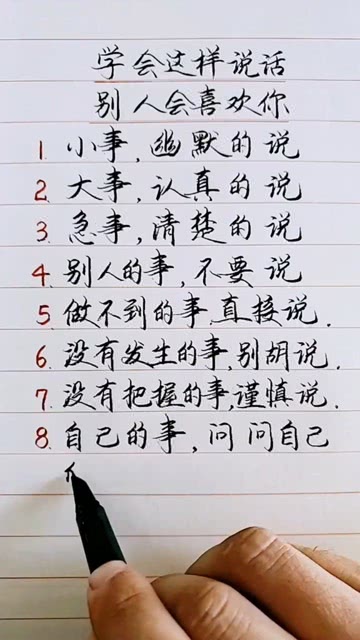 学会这样说话
别人会喜欢你
1. 小事,幽默的说
2. 大事,认真的说
3. 急事,清楚的说
4. 别人的事,不要说
5. 做不到的事,直接说.
6. 没有发生的事,别胡说.
7. 没有把握的事,谨慎说.
8. 自己的事,问问自己